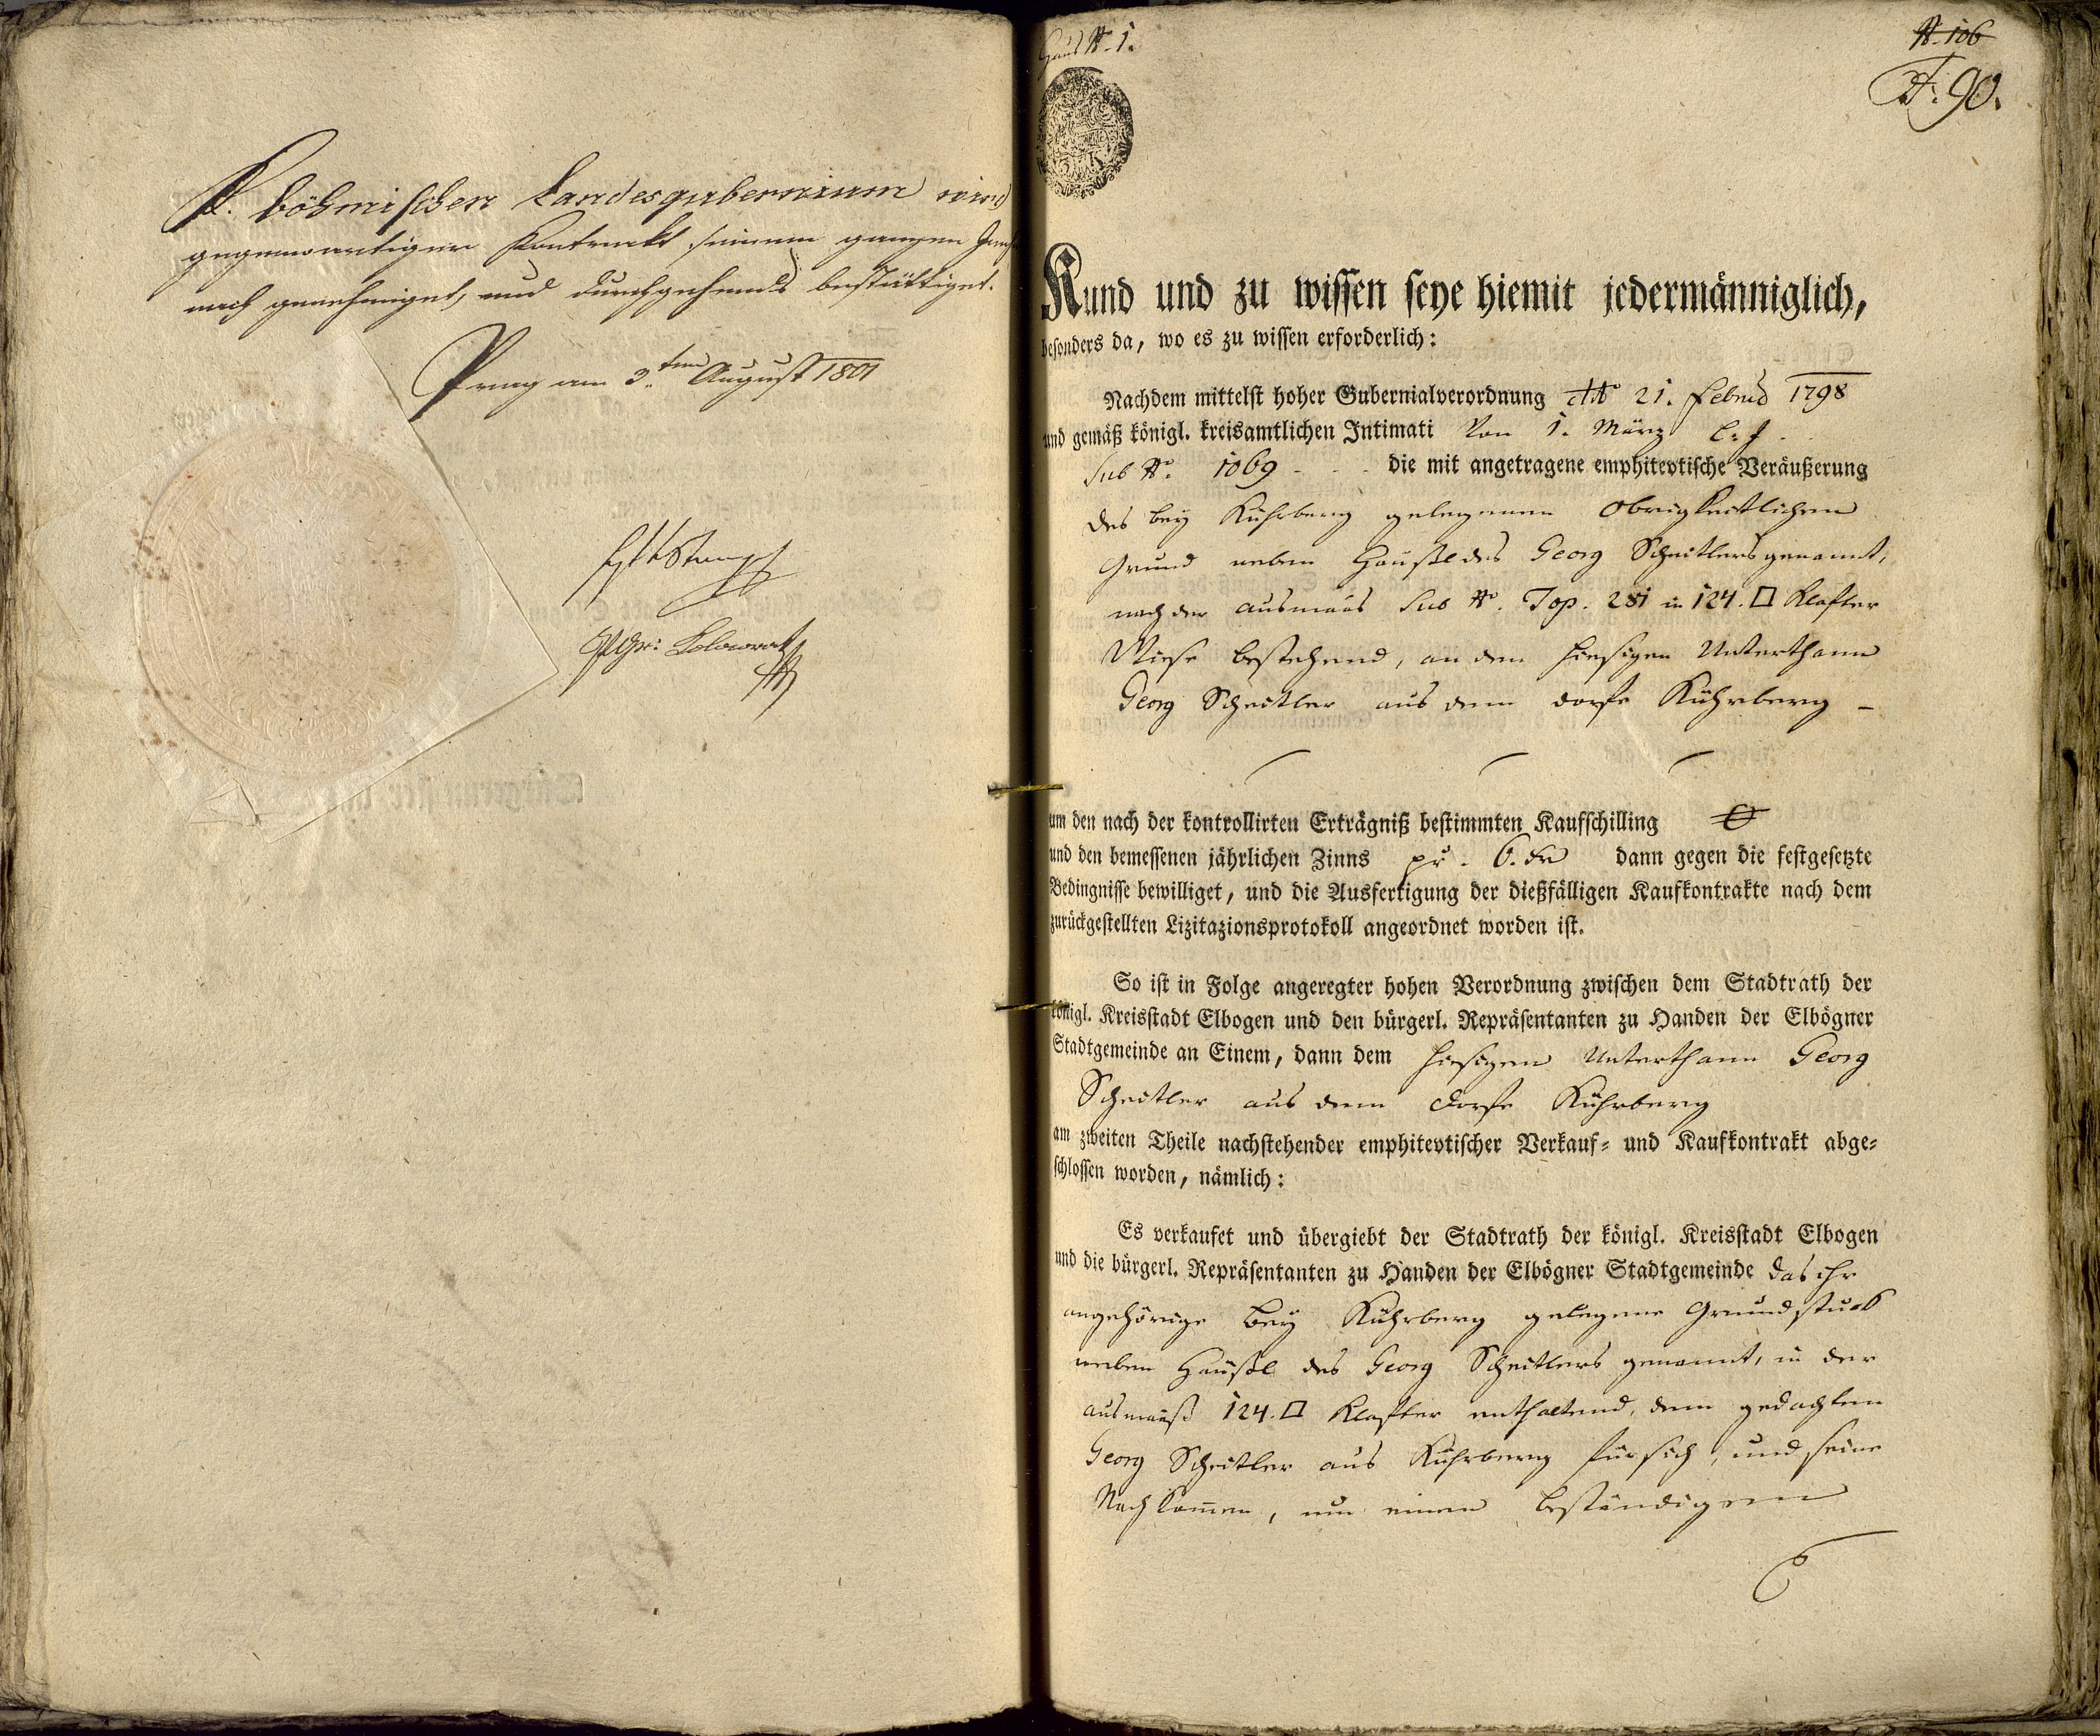 K. böhmischen Landesgubernium wird
gegenwärtiger Kontrackt seinem ganzen
nach genehmiget, und durchgehends bestättiget.
Prag am 3.ten August 1801
Haus N. 1.
N. 106
90.
Kund und zu wissen seye hiemit jedermänniglich,
besonders da, wo es zu wissen erforderlich:
Nachdem mittelst hoher Gubernialverordnung 21. Febru 1798
und gemäß königl. kreisamtlichen Intimati von 1. März
Sub No. 1069 - - - die mit angetragene emphitevtische Veräußerung
des bey Kührberg gelegenen obrigkeitlichen
Grund neben Häußl des Georg Scheitlers genannt,
nach der ausmaas Sub No. Top. 281 in 124. □ Klafter
Wiese bestehend, an den hiesigen Unterthann
Georg Scheitler aus dem dorfe Kührberg –
um den nach der kontrollirten Erträgniß bestimmten Kaufschilling
und den bemessenen jährlichen Zinns pr. 6. kr dann gegen die festgesetzte
Bedingnisse bewilliget, und die Ausfertigung der dießfälligen Kaufkontrakte nach dem
zurückgestellten Lizitazionsprotokoll angeordnet worden ist.
So ist in Folge angeregter hohen Verordnung zwischen dem Stadtrath der
königl. Kreisstadt Elbogen und den bürgerl. Repräsentanten zu Handen der Elbögner
Stadtgemeinde an Einem, dann dem hiesigen Unterthann Georg
Scheitler aus dem dorfe Kührberg
am zweiten Theile nachstehender emphitevtischer Verkauf- und Kaufkontrakt abge-
schlossen worden, nämlich:
Es verkaufet und übergiebt der Stadtrath der königl. Kreisstadt Elbogen
und die bürgerl. Repräsentanten zu Handen der Elbögner Stadtgemeinde das ihr
angehörige bey Kührberg gelegene Grundstuck
neben Häußl des Georg Scheitlers genannt, in der
ausmaaß 124. □ Klafter enthaltend, dem gedachten
Georg Scheitler aus Kührberg für sich, und seine
Nachkommen, um einen beständigen